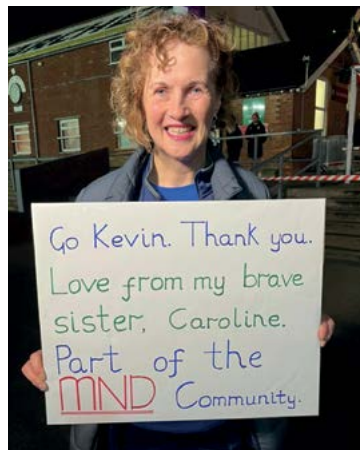 Go Kevin. Thank you.
Love from my brave
sister, Caroline.
Part of the
MND Community.